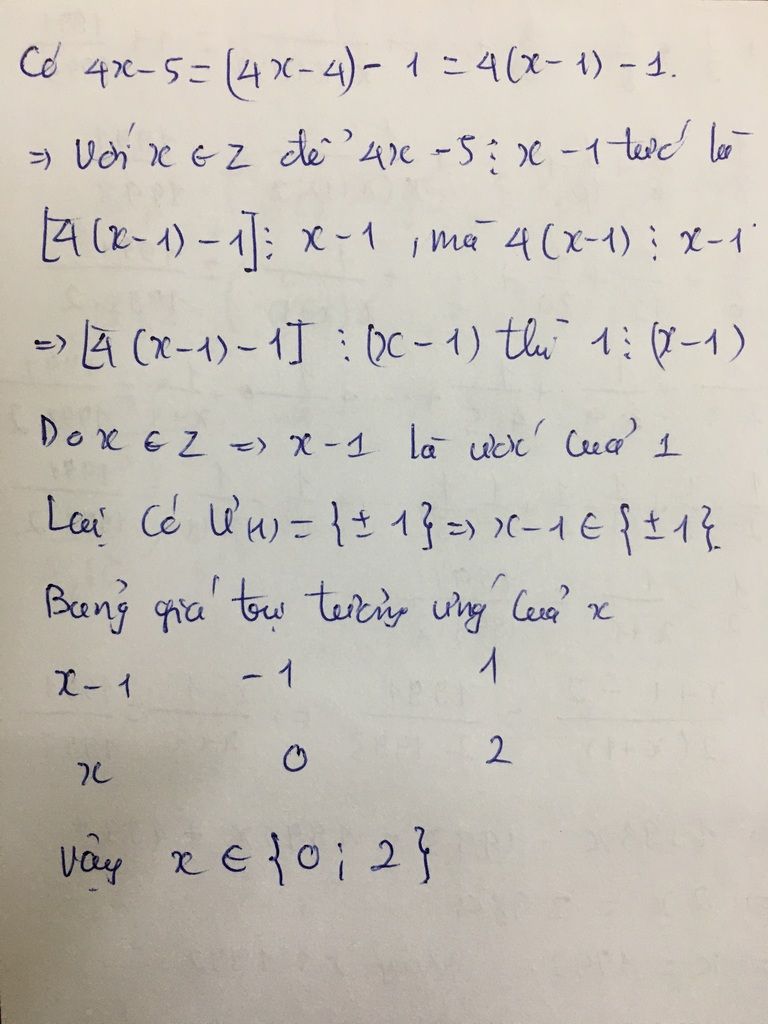 Có 4x-5=(4x-4)-1=4(x-1)-1.
=> Với x ∈ Z để 4x-5⋮x-1 tức là
[4(x-1)-1]⋮ x-1, mà 4(x-1)⋮x-1
=> [4(x-1)-1] ⋮(x-1) thì 1⋮(x-1)
Do x ∈ Z => x-1 là ước của 1
Lại có Ư(1)={±1}=>x-1∈{±1}.
Bảng giá trị tương ứng của x
x-1 -1 1
x 0 2
Vậy x ∈ {0; 2}